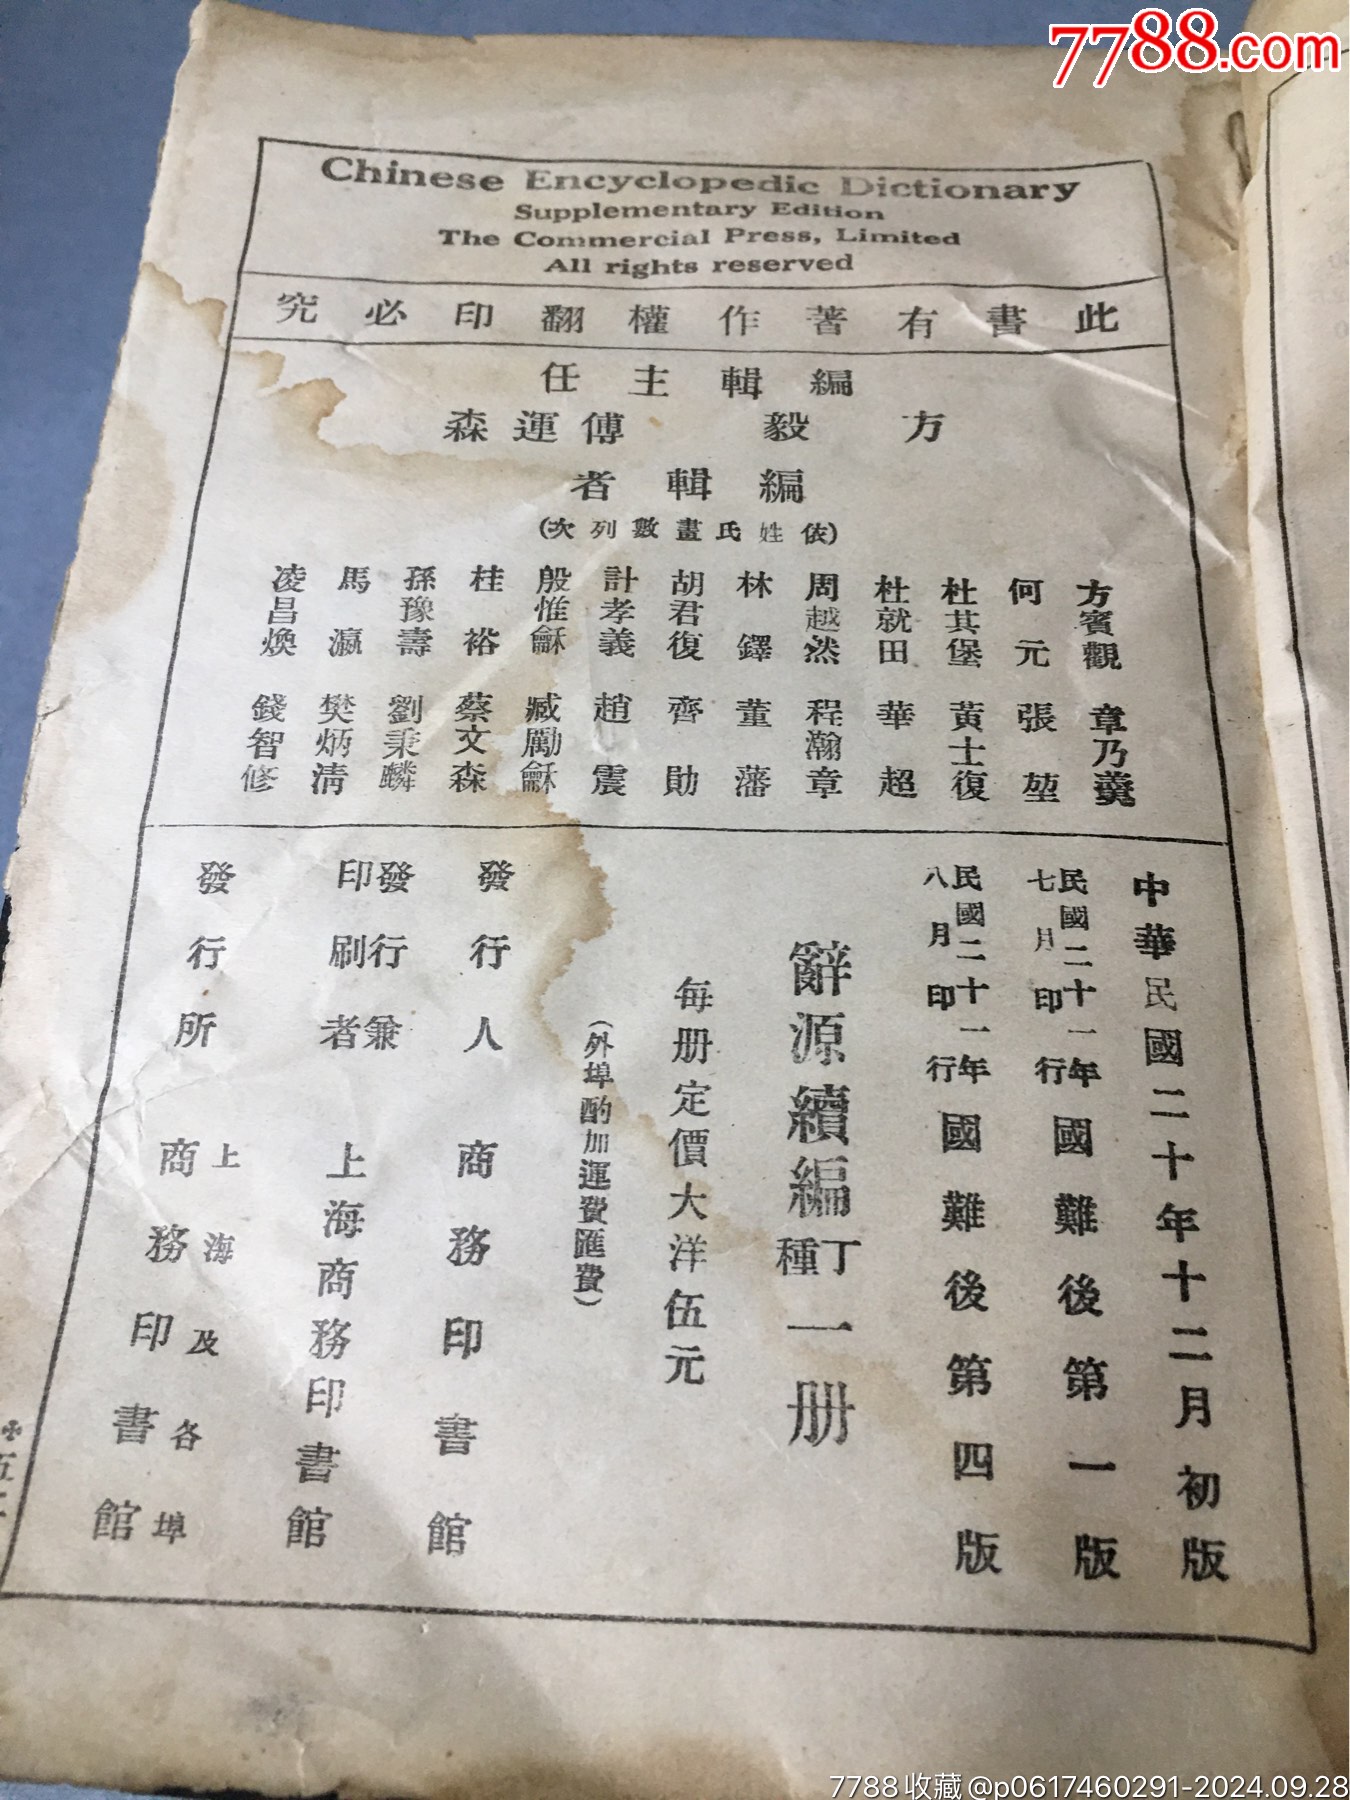 7788.com
Chinese Encyclopedic Dictionary
Supplementary Edition
The Commercial Press, Limited
All rights reserved
此書有著作權翻印必究
編輯主任
方毅 傅運森
編輯者
(依姓氏畫數列次)
方賓觀
何元
杜其堡
杜就田
周越然
林鐸
胡君復
計孝義
殷惟龢
桂裕
孫豫壽
馬瀛
凌昌煥
章乃羹
張堃
黃士復
華超
程瀚章
董藩
齊勛
趙震
臧勵龢
蔡文森
劉秉麟
樊炳清
錢智修
中華民國二十年十二月初版
民國二十一年七月印行國難後第一版
民國二十一年八月印行國難後第四版
辭源續編丁種一册
每册定價大洋伍元
(外埠酌加運費匯費)
發行人 商務印書館
發行兼印刷者 上海商務印書館
發行所 上海及各埠 商務印書館
7788收藏@p0617460291-2024.09.28